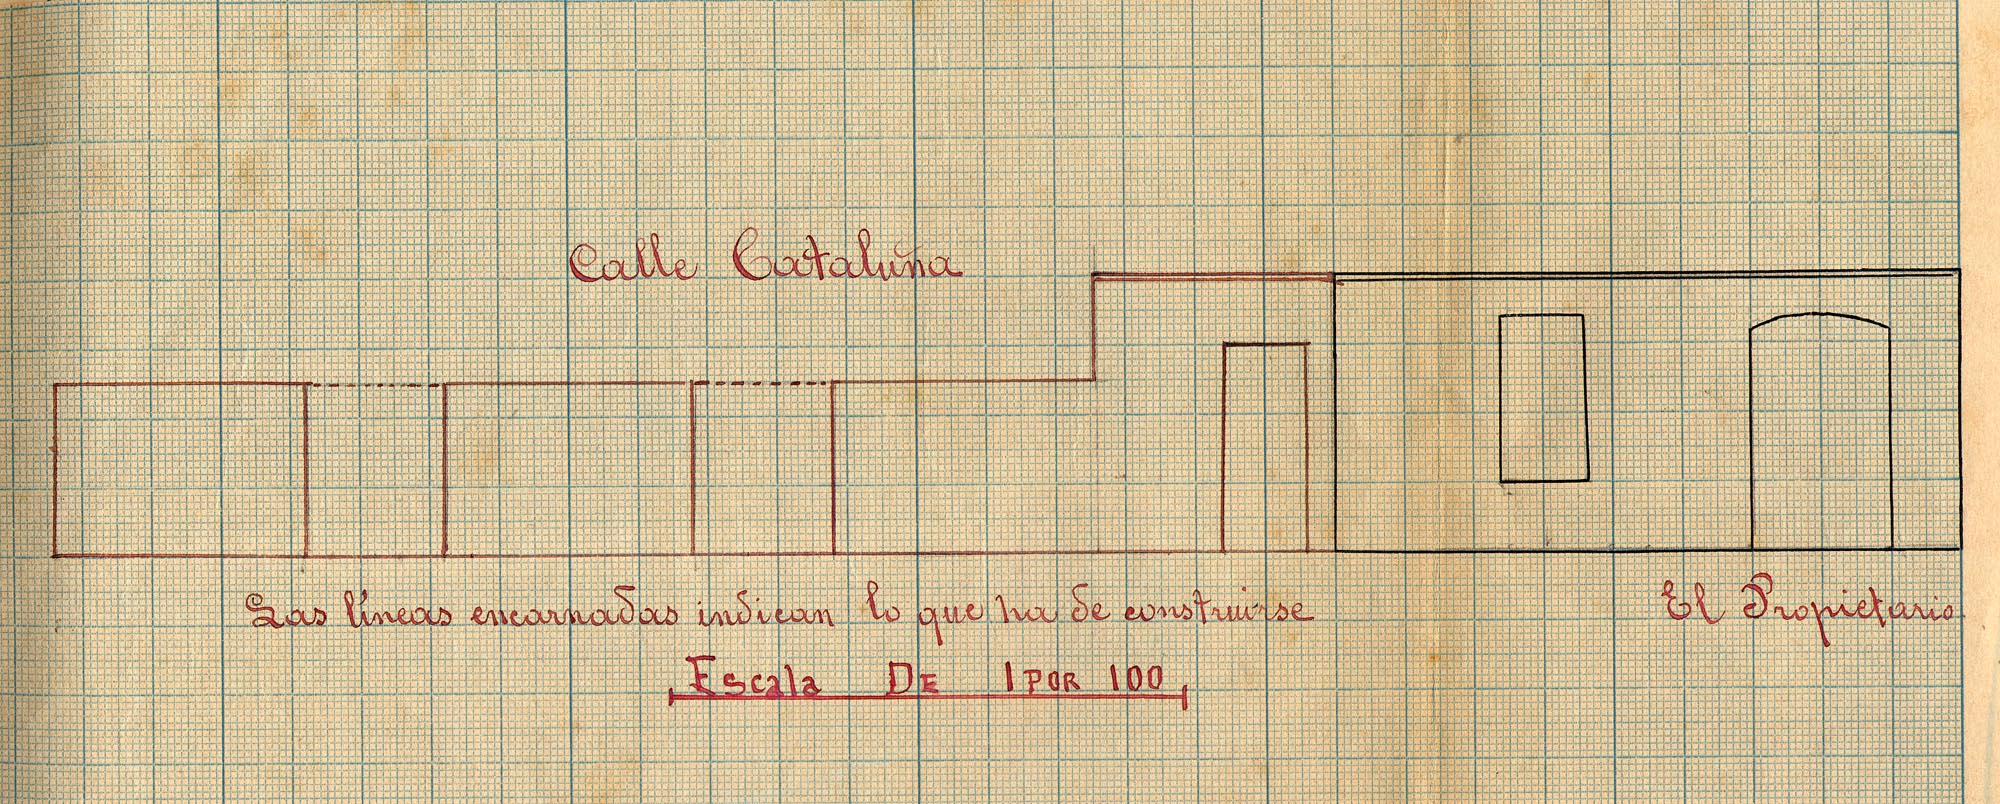 Calle Cataluña
Las líneas encarnadas indican lo que ha de construirse
El Propietario
Escala De 1 por 100